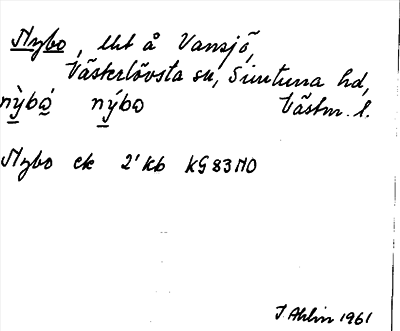 Nybo, lht å Vansjö,
Västerlövsta sn, Simtuna hd,
nỳbó nýbo Västm. l.
Nybo ek 2' kb KG 83 NO
J Ahlin 1961